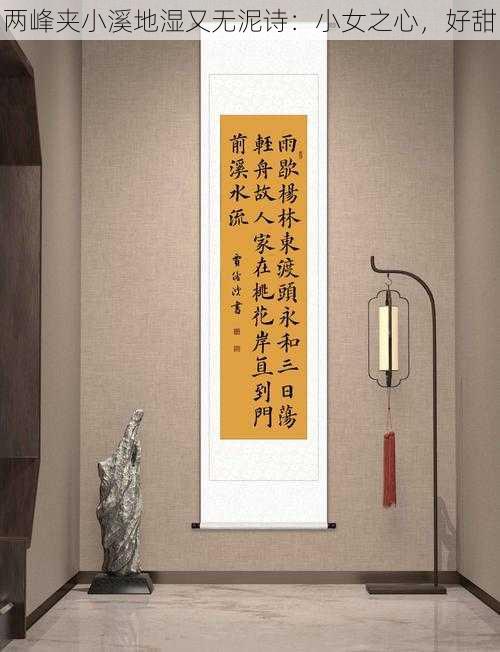 两峰夹小溪地湿又无泥诗：小女之心，好甜
雨歇楊林東渡頭永和三日蕩
輕舟故人家在桃花岸直到門
前溪水流